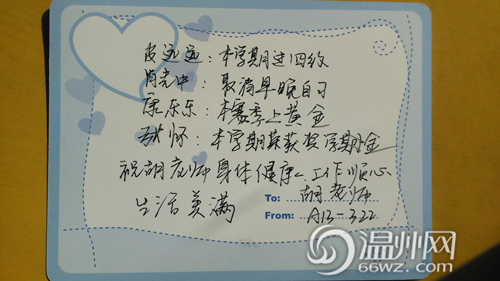 皮远远：本学期过四级
肖志中：取消早晚自习
康乐乐：本赛季上黄金
怀：本学期获奖学金
祝胡老师身体健康 工作顺心
生活美满
To: 胡老师
From: A13-322
温州网
66wz.com